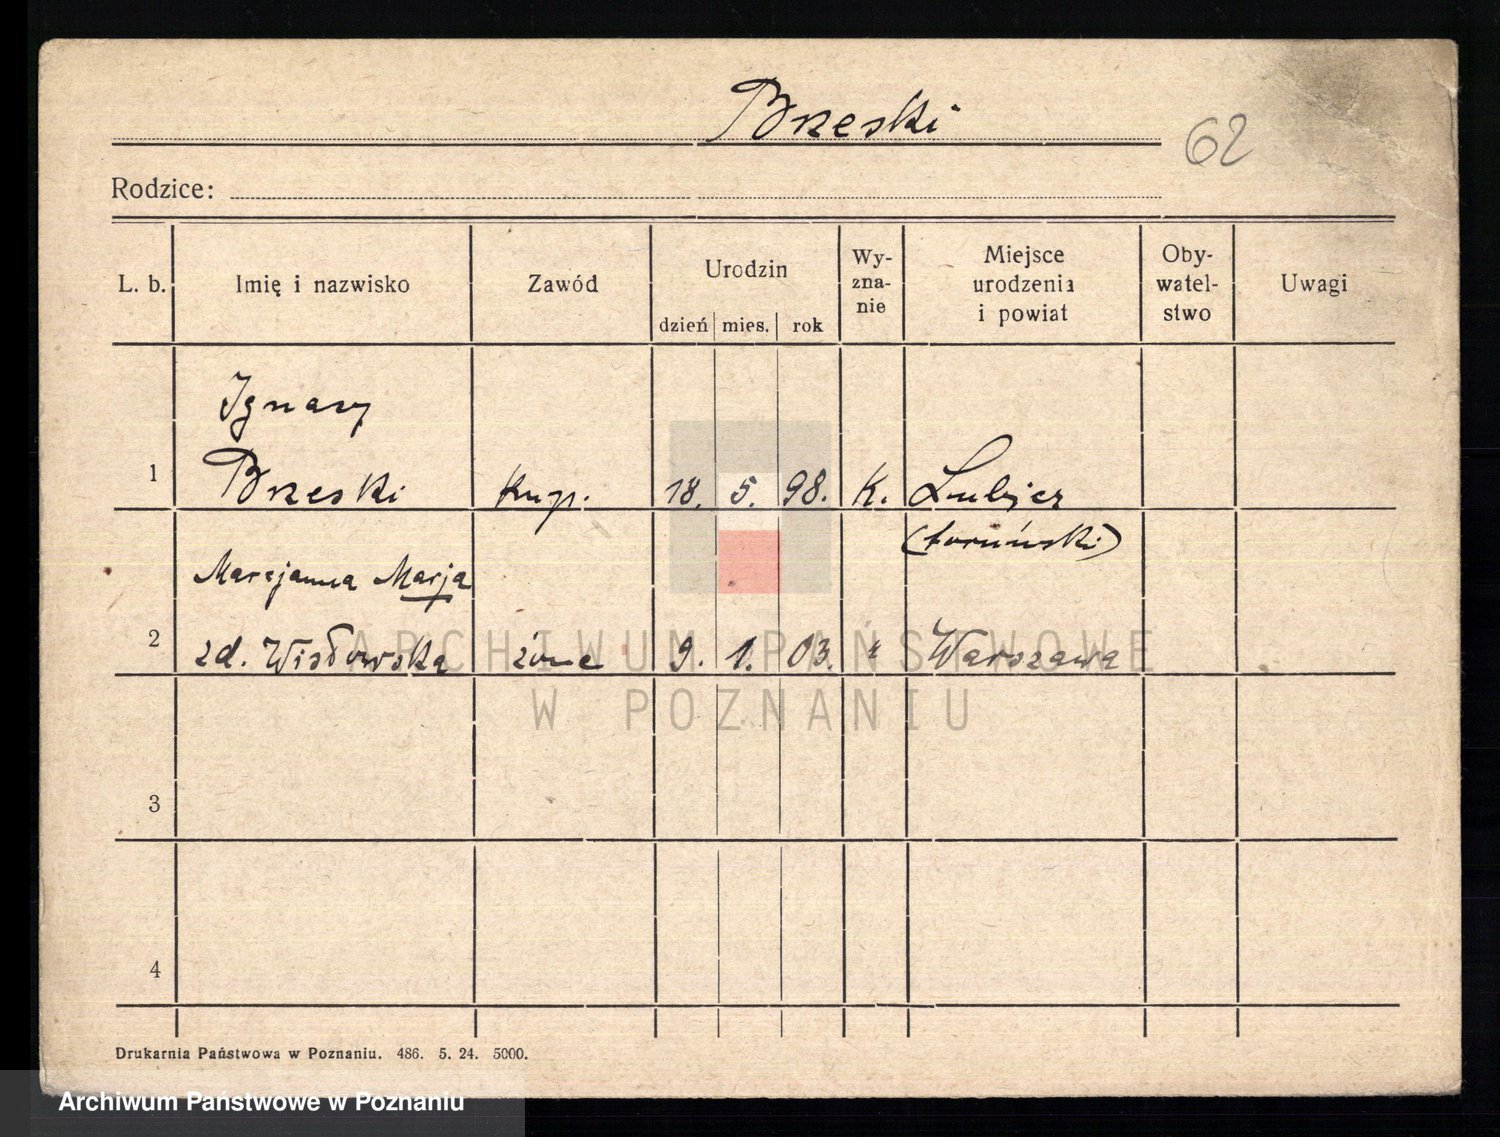 Brzeski
62
Rodzice:
L. b.
Imię i nazwisko
Zawód
Urodzin
dzień mies. rok
Wy-
zna-
nie
Miejsce
urodzenia
i powiat
Oby-
watel-
stwo
Uwagi
Ignacy
1 Brzeski kup. 18. 5. 98. K. Lubicz
(toruński)
Marcjanna Marja
2 zd. Wisłowska żona 9. 1. 03. " Warszawa
ARCHIWUM PAŃSTWOWE
W POZNANIU
3
4
Drukarnia Państwowa w Poznaniu. 486. 5. 24. 5000.
Archiwum Państwowe w Poznaniu